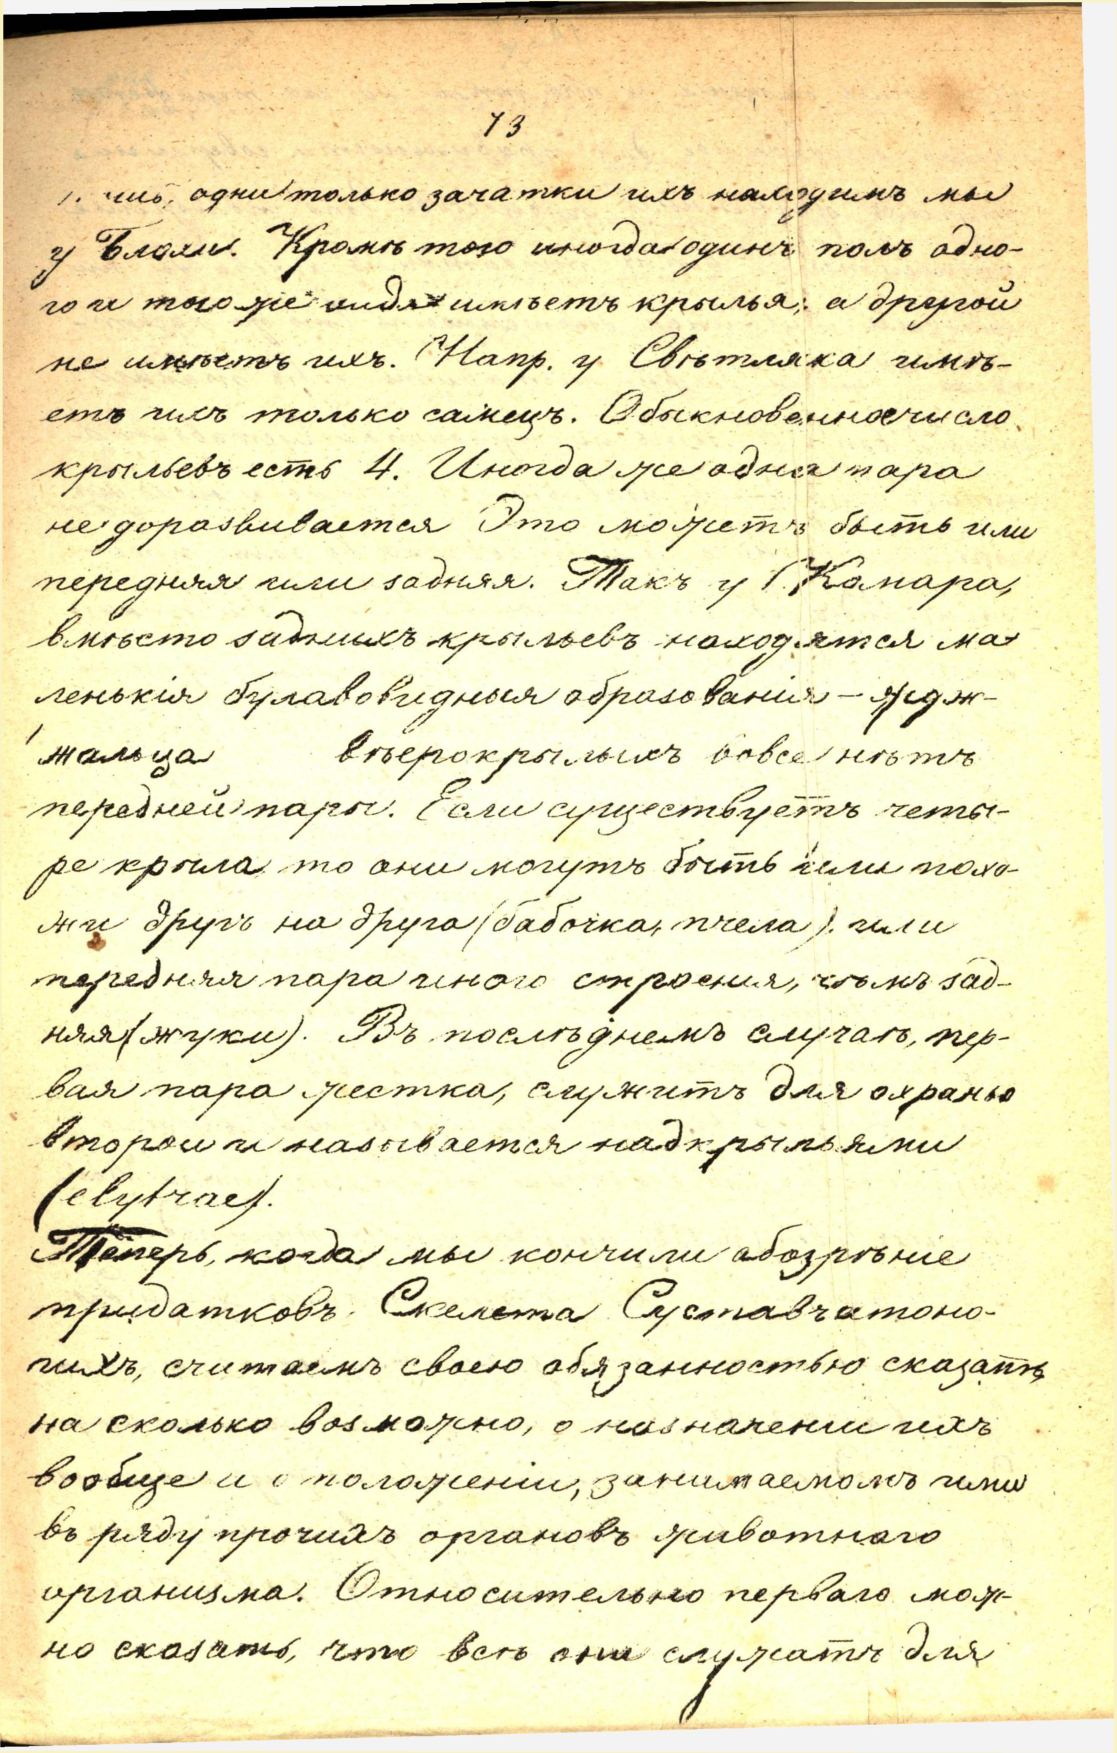 73
одни только зачатки ихъ находимъ мы
у Блохи. Кромѣ того иногда одинъ полъ одно-
го и того же вида имѣетъ крылья, а другой
не имѣетъ ихъ. Напр. у Свѣтляка имѣ-
етъ ихъ только самецъ. Обыкновенное число
крыльевъ есть 4. Иногда же одна пара
не доразвивается Это можетъ быть или
передняя или задняя. Такъ у Комара,
вмѣсто заднихъ крыльевъ находятся ма-
ленькія булавовидныя образованія –
жальца вѣерокрылыхъ вовсе нѣтъ
передней пары. Если существуетъ четы-
ре крыла то они могутъ быть или похо-
жи другъ на друга (бабочка, пчела) или
передняя пара иного строения, чѣмъ зад-
няя (жуки). Въ послѣднемъ случаѣ, пер-
вая пара жестка, служитъ для охраны
второй и называется надкрыльями
(elytrae).
Теперь, когда мы кончили обозрѣніе
придатковъ Скелета Суставчатоно-
гихъ, считаемъ своею обязанностью сказать
на сколько возможно, о назначении ихъ
вообще и о положеніи, занимаемомъ ими
въ ряду прочихъ органовъ животнаго
организма. Относительно перваго мож-
но сказать, что всѣ они служатъ для